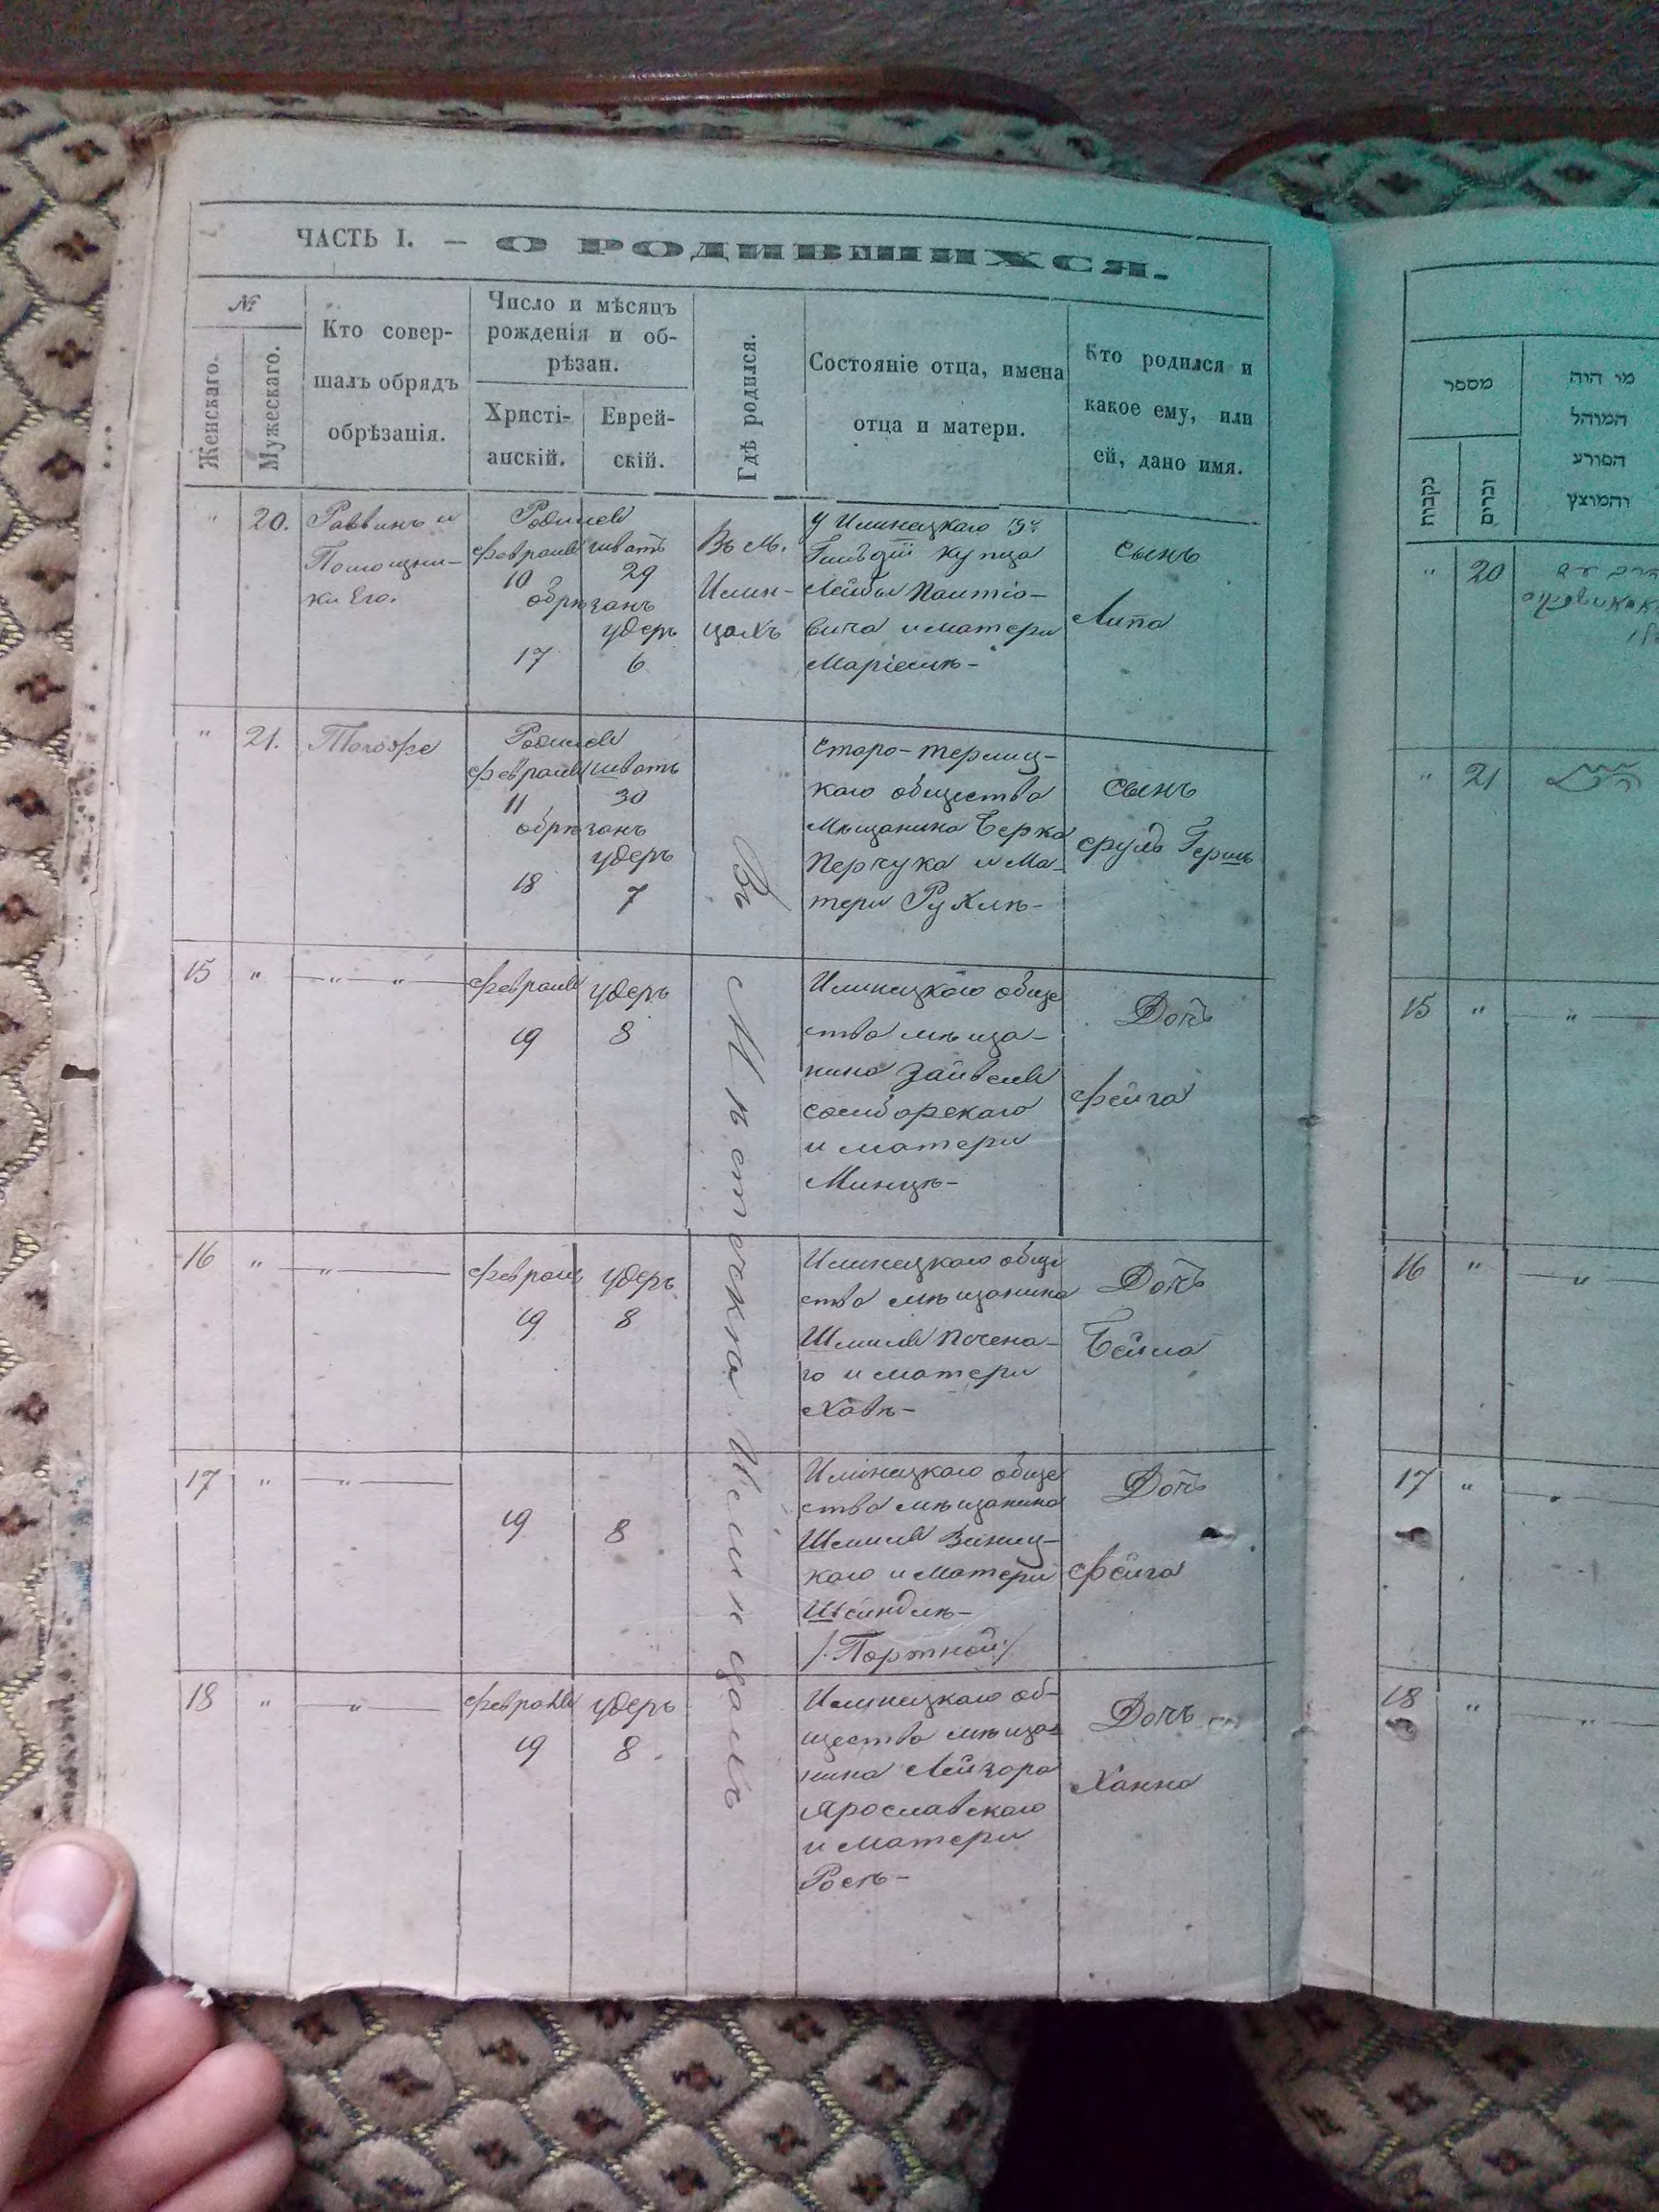 ЧАСТЬ I. — О РОДИВШИХСЯ.
№
Женскаго.
Мужескаго.
Кто совер-
шалъ обрядъ
обрѣзанія.
Число и мѣсяцъ
рожденія и об-
рѣзан.
Христі-
анскій.
Еврей-
скій.
Гдѣ родился.
Состояніе отца, имена
отца и матери.
Кто родился и
какое ему, или
ей, дано имя.
" 20.
Раввинъ и
Помощни-
ки Его.
Родился
февраля шватъ
10 29
обрѣзанъ
удеръ
17 6
Въ м.
Илин-
цахъ
У Илинецкаго 3й
Гильдіи купца
Лейбы
вича и матери
Маріемъ-
сынъ
Липа
" 21.
Тогоже
Родился
февраля шватъ
11 30
обрѣзанъ
удеръ
18 7
Въ Мѣстечкѣ Илинцахъ
Старо-
каго общества
мѣщанина Берка
Перчука и Ма-
тери Рухлѣ-
сынъ
Сруль Гершъ
15 " — " — " —
февраля удеръ
19 8
Илинецкаго обще
ства мѣща-
нина Зайвеля
Самборскаго
и матери
Минцѣ-
Дочь
Фейга
16 " — " —
февраля удеръ
19 8
Илинецкаго обще
ства мѣщанина
Шмиля Почена-
го и матери
Хавѣ-
Дочь
Бейла
17 " — " —
19 8
Илинецкаго обще
ства мѣщанина
Шмиля Винниц-
каго и матери
Шейндлѣ-
/:Портной:/
Дочь
Фейга
18 " — " —
февраля удеръ
19 8.
Илинецкаго об-
щества мѣща-
нина Лейзора
Ярославскаго
и матери
Росѣ-
Дочь
Ханна
מספר
נקבות
זכרים
מי היה
המוהל
הפורע
והמוצץ
" 20
" 21
15 " — " —
16 " — " —
17 " —
18 " — " —